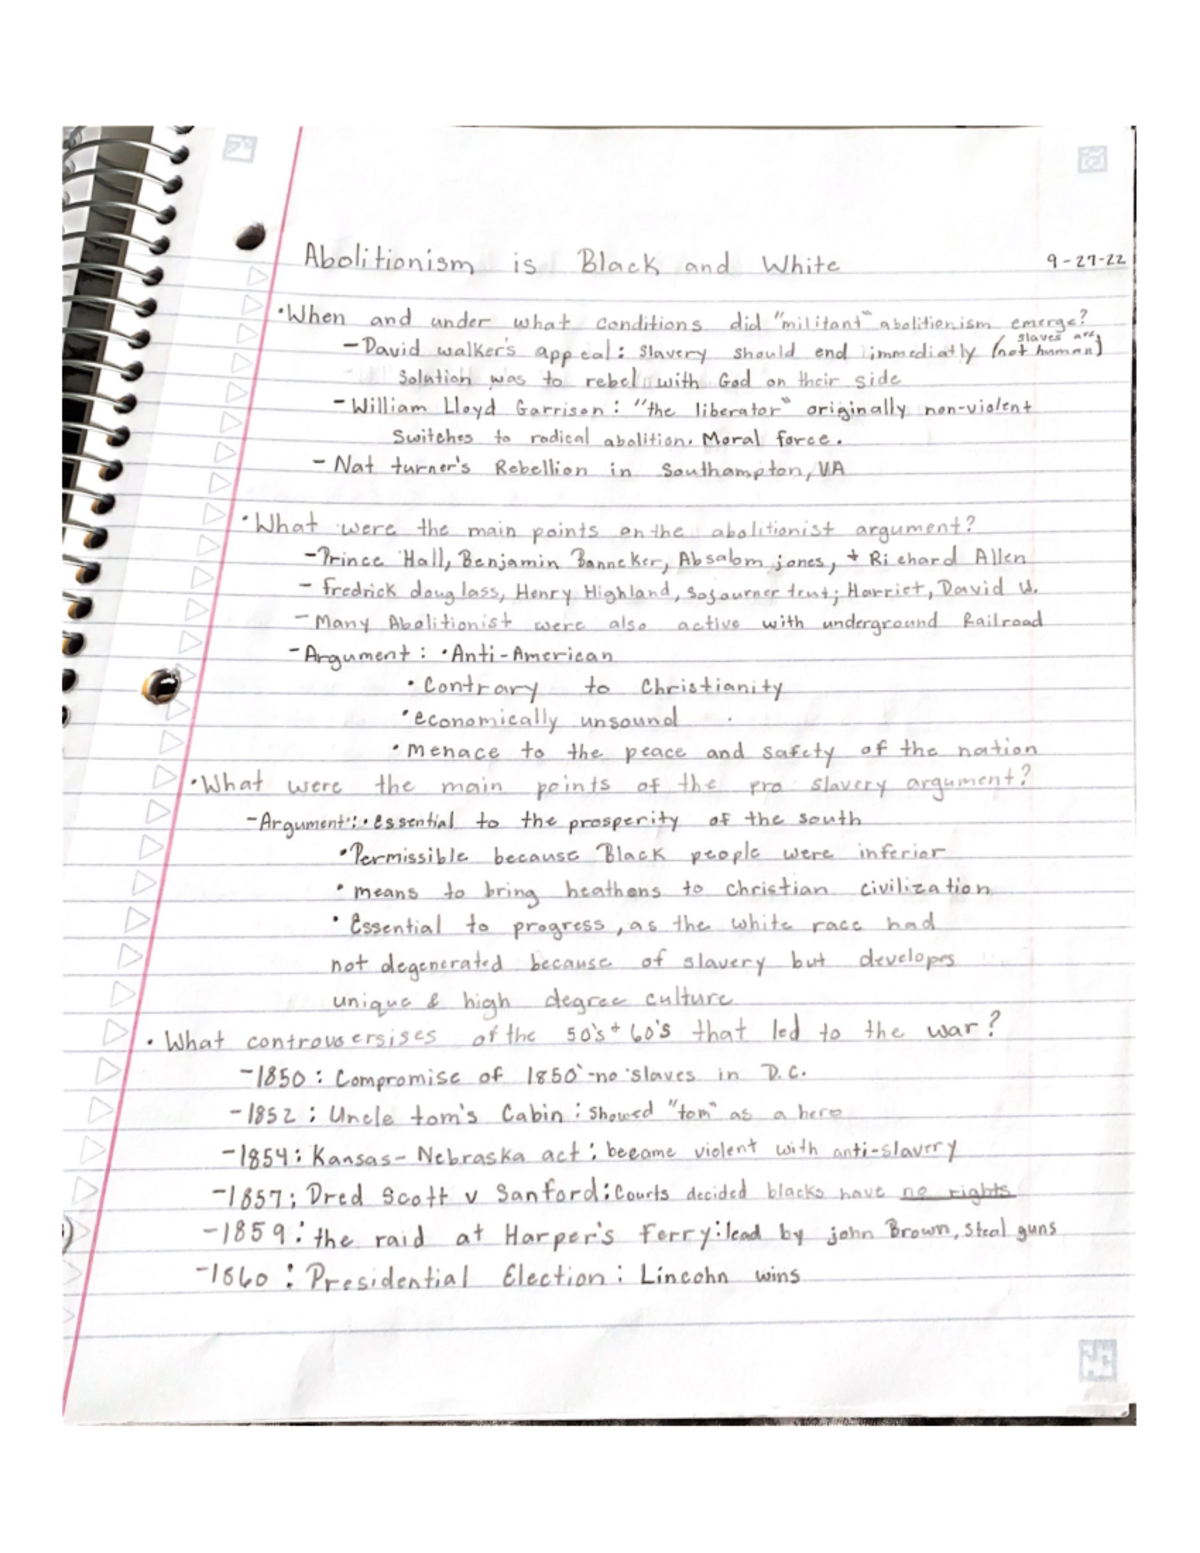 Abolitionism is Black and White 9-27-22
•When and under what conditions did "militant" abolitionism emerge?
-David walker's appeal: slavery should end immediatly (slaves are not human)
Solution was to rebel with God on their side
-William Lloyd Garrison: "the liberator" originally non-violent
Switches to radical abolition. Moral force.
- Nat turner's Rebellion in Southampton, VA
•What were the main points on the abolitionist argument?
-Prince Hall, Benjamin Banneker, Absalom jones, + Richard Allen
- fredrick douglass, Henry Highland, Sojourner trut; Harriet, David W.
- Many Abolitionist were also active with underground Railroad
-Argument: •Anti-American
• Contrary to Christianity
•economically unsound
• menace to the peace and safety of the nation
•What were the main points of the pro slavery argument?
-Argument: • essential to the prosperity of the south
•Permissible because Black people were inferior
• means to bring heathens to christian civilization
• Essential to progress, as the white race had
not degenerated because of slavery but developes
unique & high degree culture
• What of the 50's + 60's that led to the war?
-1850: Compromise of 1850 -no slaves in D.C.
-1852: Uncle tom's Cabin: showed "tom" as a hero
-1854: Kansas- Nebraska act: became violent with anti-slavery
-1857: Dred Scott v Sanford: Courts decided blacks have no rights
-1859: the raid at Harper's ferry: lead by john Brown, steal guns
-1860: Presidential Election: Lincohn wins